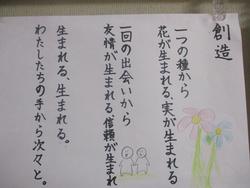 創造
一つの種から
花が生まれる、実が生まれる
一回の出会いから
友情が生まれる 信頼が生まれ
生まれる、生まれる。
わたしたちの手から次々と。